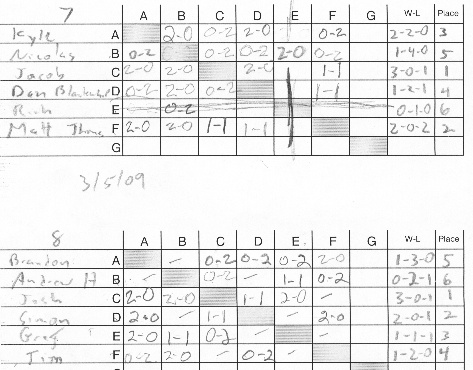 7 A B C D E F G W-L Place
Kyle A 2-0 0-2 2-0 0-2 2-2-0 3
Nicolas B 0-2 0-2 0-2 2-0 0-2 1-4-0 5
Jacob C 2-0 2-0 2-0 1-1 3-0-1 1
Don D 0-2 2-0 0-2 1-1 1-2-1 4
Rich E 0-2 0-1-0 6
Matt F 2-0 2-0 1-1 1-1 2-0-2 2
G
3/5/09
8 A B C D E F G W-L Place
Brandon A - 0-2 0-2 0-2 2-0 1-3-0 5
Andrew H B - 0-2 - 1-1 0-2 0-2-1 6
Josh C 2-0 2-0 1-1 2-0 - 3-0-1 1
Simon D 2-0 - 1-1 - 2-0 2-0-1 2
Greg E 2-0 1-1 0-2 - - 1-1-1 3
Tim F 0-2 2-0 - 0-2 - 1-2-0 4